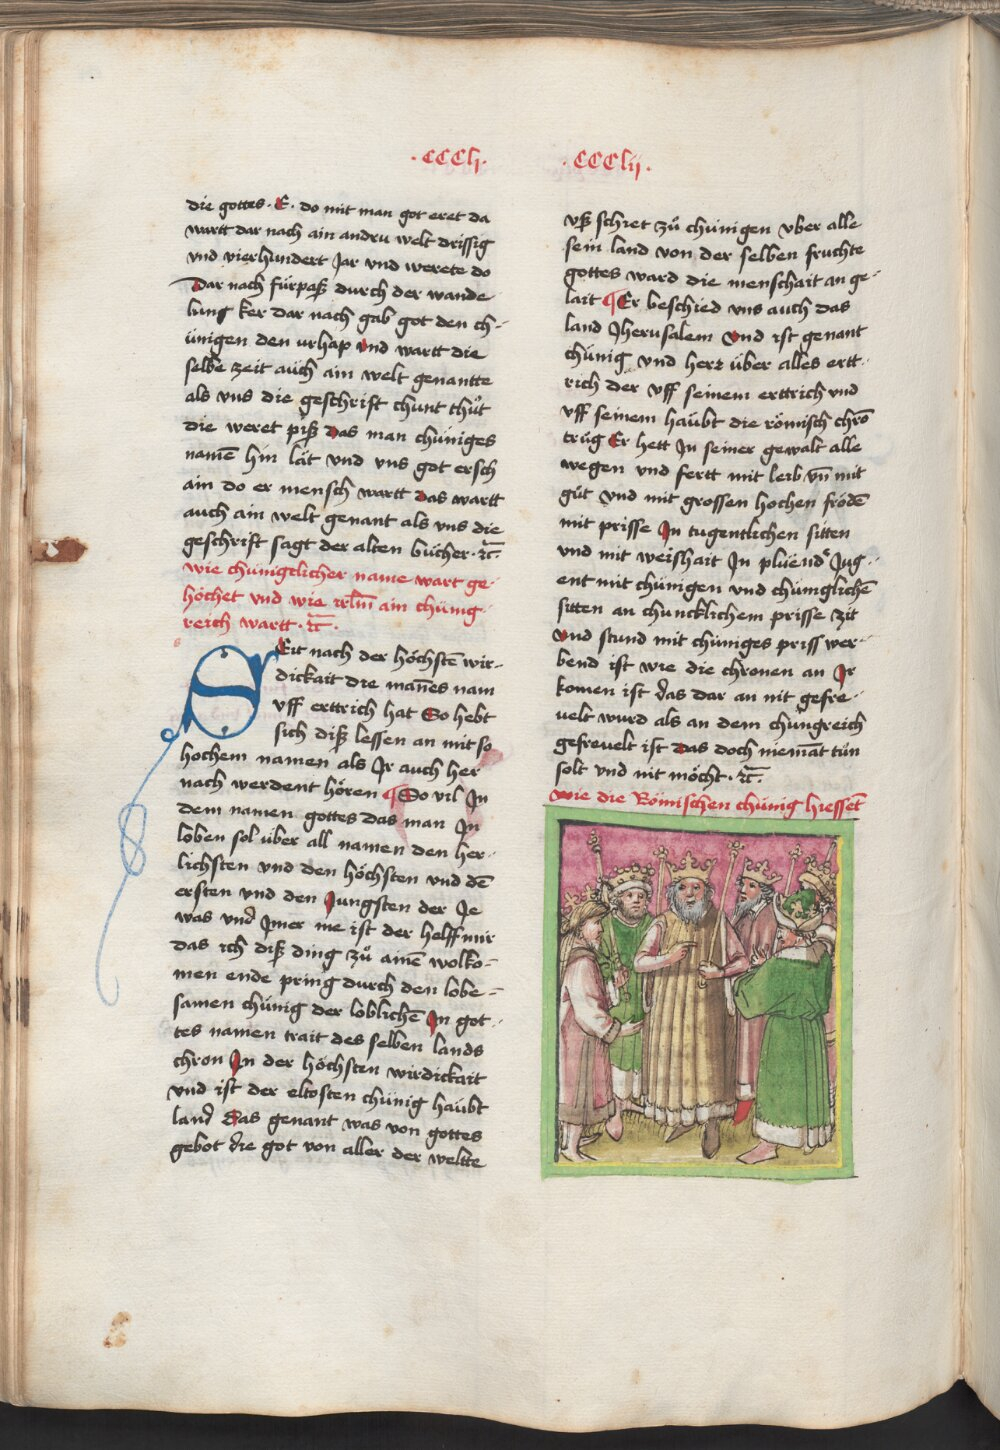 ·CCCli·
die gottes · E · do mit man got eret da
wartt dar nach ain andru welt drissig
vnd vierhundert Jar vnd werete do
Dar nach fürpaß durch der wande
lung ker dar nach gab got den ch-
ünigen den vrhap vnd wartt die
selbe zeit aüch ain welt genantte
als vns die geschrift chunt thůt
die weret piß das man chüniges
namē hin lät vnd vns got ersch
ain do er mensch wartt das wartt
auch ain welt genant als vns die
geschrift sagt der alten bücher · ꝛc̄
wie chüniglicher name wart ge-
höchet vnd wie ain chünig
reich wartt · ꝛc̄ ·
SEit nach der höchstē wir-
dickait die manēs nam
vff erttrich hat So hebt
sich diß lessen an mit so
hochem namen als Jr auch her
nach werdent hören ¶ So vil Jn
dem namen gottes das man Jn
loben sol über all namen den her-
lichsten vnd den höchsten vnd dē
ersten vnd den Jungsten der Je
was vnd Jmer me ist der helff mir
das ich diß ding zů ainē wolko-
men ende pring durch den lobe-
samen chünig der loblichē Jn got-
tes namen trait des selben lands
chron Jn der höchsten wirdickait
vnd ist der eltosten chünig haübt
land das genant was von gottes
gebot die got von aller der weltte
·CCClij·
vß schriet zů chünigen vber alle
sein land von der selben fruchte
gottes ward die menschait an ge-
lait ¶ Er beschied vns auch das
land Jherusalem Vnd ist genant
chünig vnd herr über alles ertt-
rich der vff seinem erttrich vnd
vff seinem haübt die römisch chrō
trüg Er hett Jn seiner gewalt alle
wegen vnd fertt mit leib vn̄ mit
güt vnd mit grossen hochen frödē
mit prisse Jn tugentlichen sitten
vnd mit weishait Jn plüend' Jug-
ent mit chünigen vnd chüniglichē
sitten an chuncklichem prisse zit
vnd stund mit chüniges priss wer-
bend ist wie die chronen an Jr
komen ist das dar an nit gefre-
uelt wurd als an dem chungreich
gefreuelt ist das doch niemāt tün
solt vnd nit möcht · ꝛc̄ ·
wie die Römischen chünig hiessēt